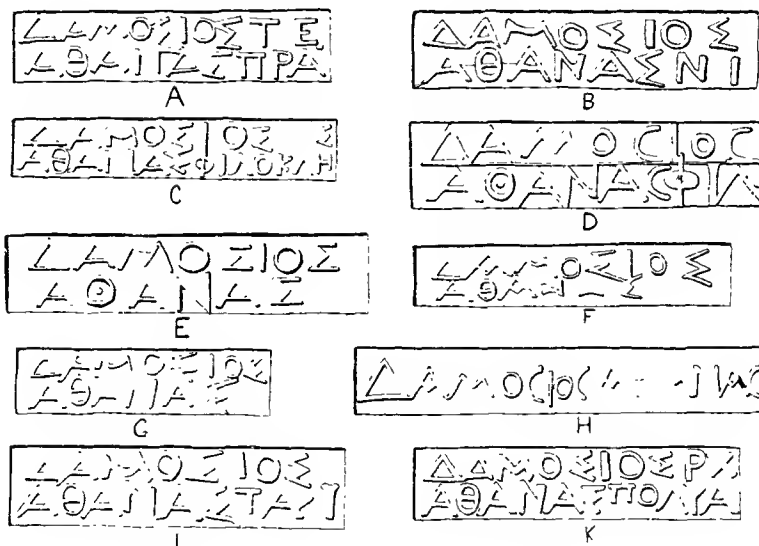 ΔΑΜΟΣΙΟΣΤΕ
ΑΘΑΝΑΣΠΡΑ
A
ΔΑΜΟΣΙΟΣ
ΑΘΑΝΑΣΝΙ
B
ΔΑΜΟΣΙΟΣ Σ
ΑΘΑΝΑΣΦΙΛΟΚΛΗ
C
ΔΑΜΟϹΙΟϹ
ΑΘΑΝΑϹΦΙΛ
D
ΔΑΜΟΣΙΟΣ
ΑΘΑΝΑΣ
E
ΔΑΜΟΣΙΟΣ
F
ΔΑΜΟΣΙΟΣ
ΑΘΑΝΑΣ
G
ΔΑΜΟϹΙΟϹ
H
ΔΑΜΟΣΙΟΣ
I
ΔΑΜΟΣΙΟΣ
K